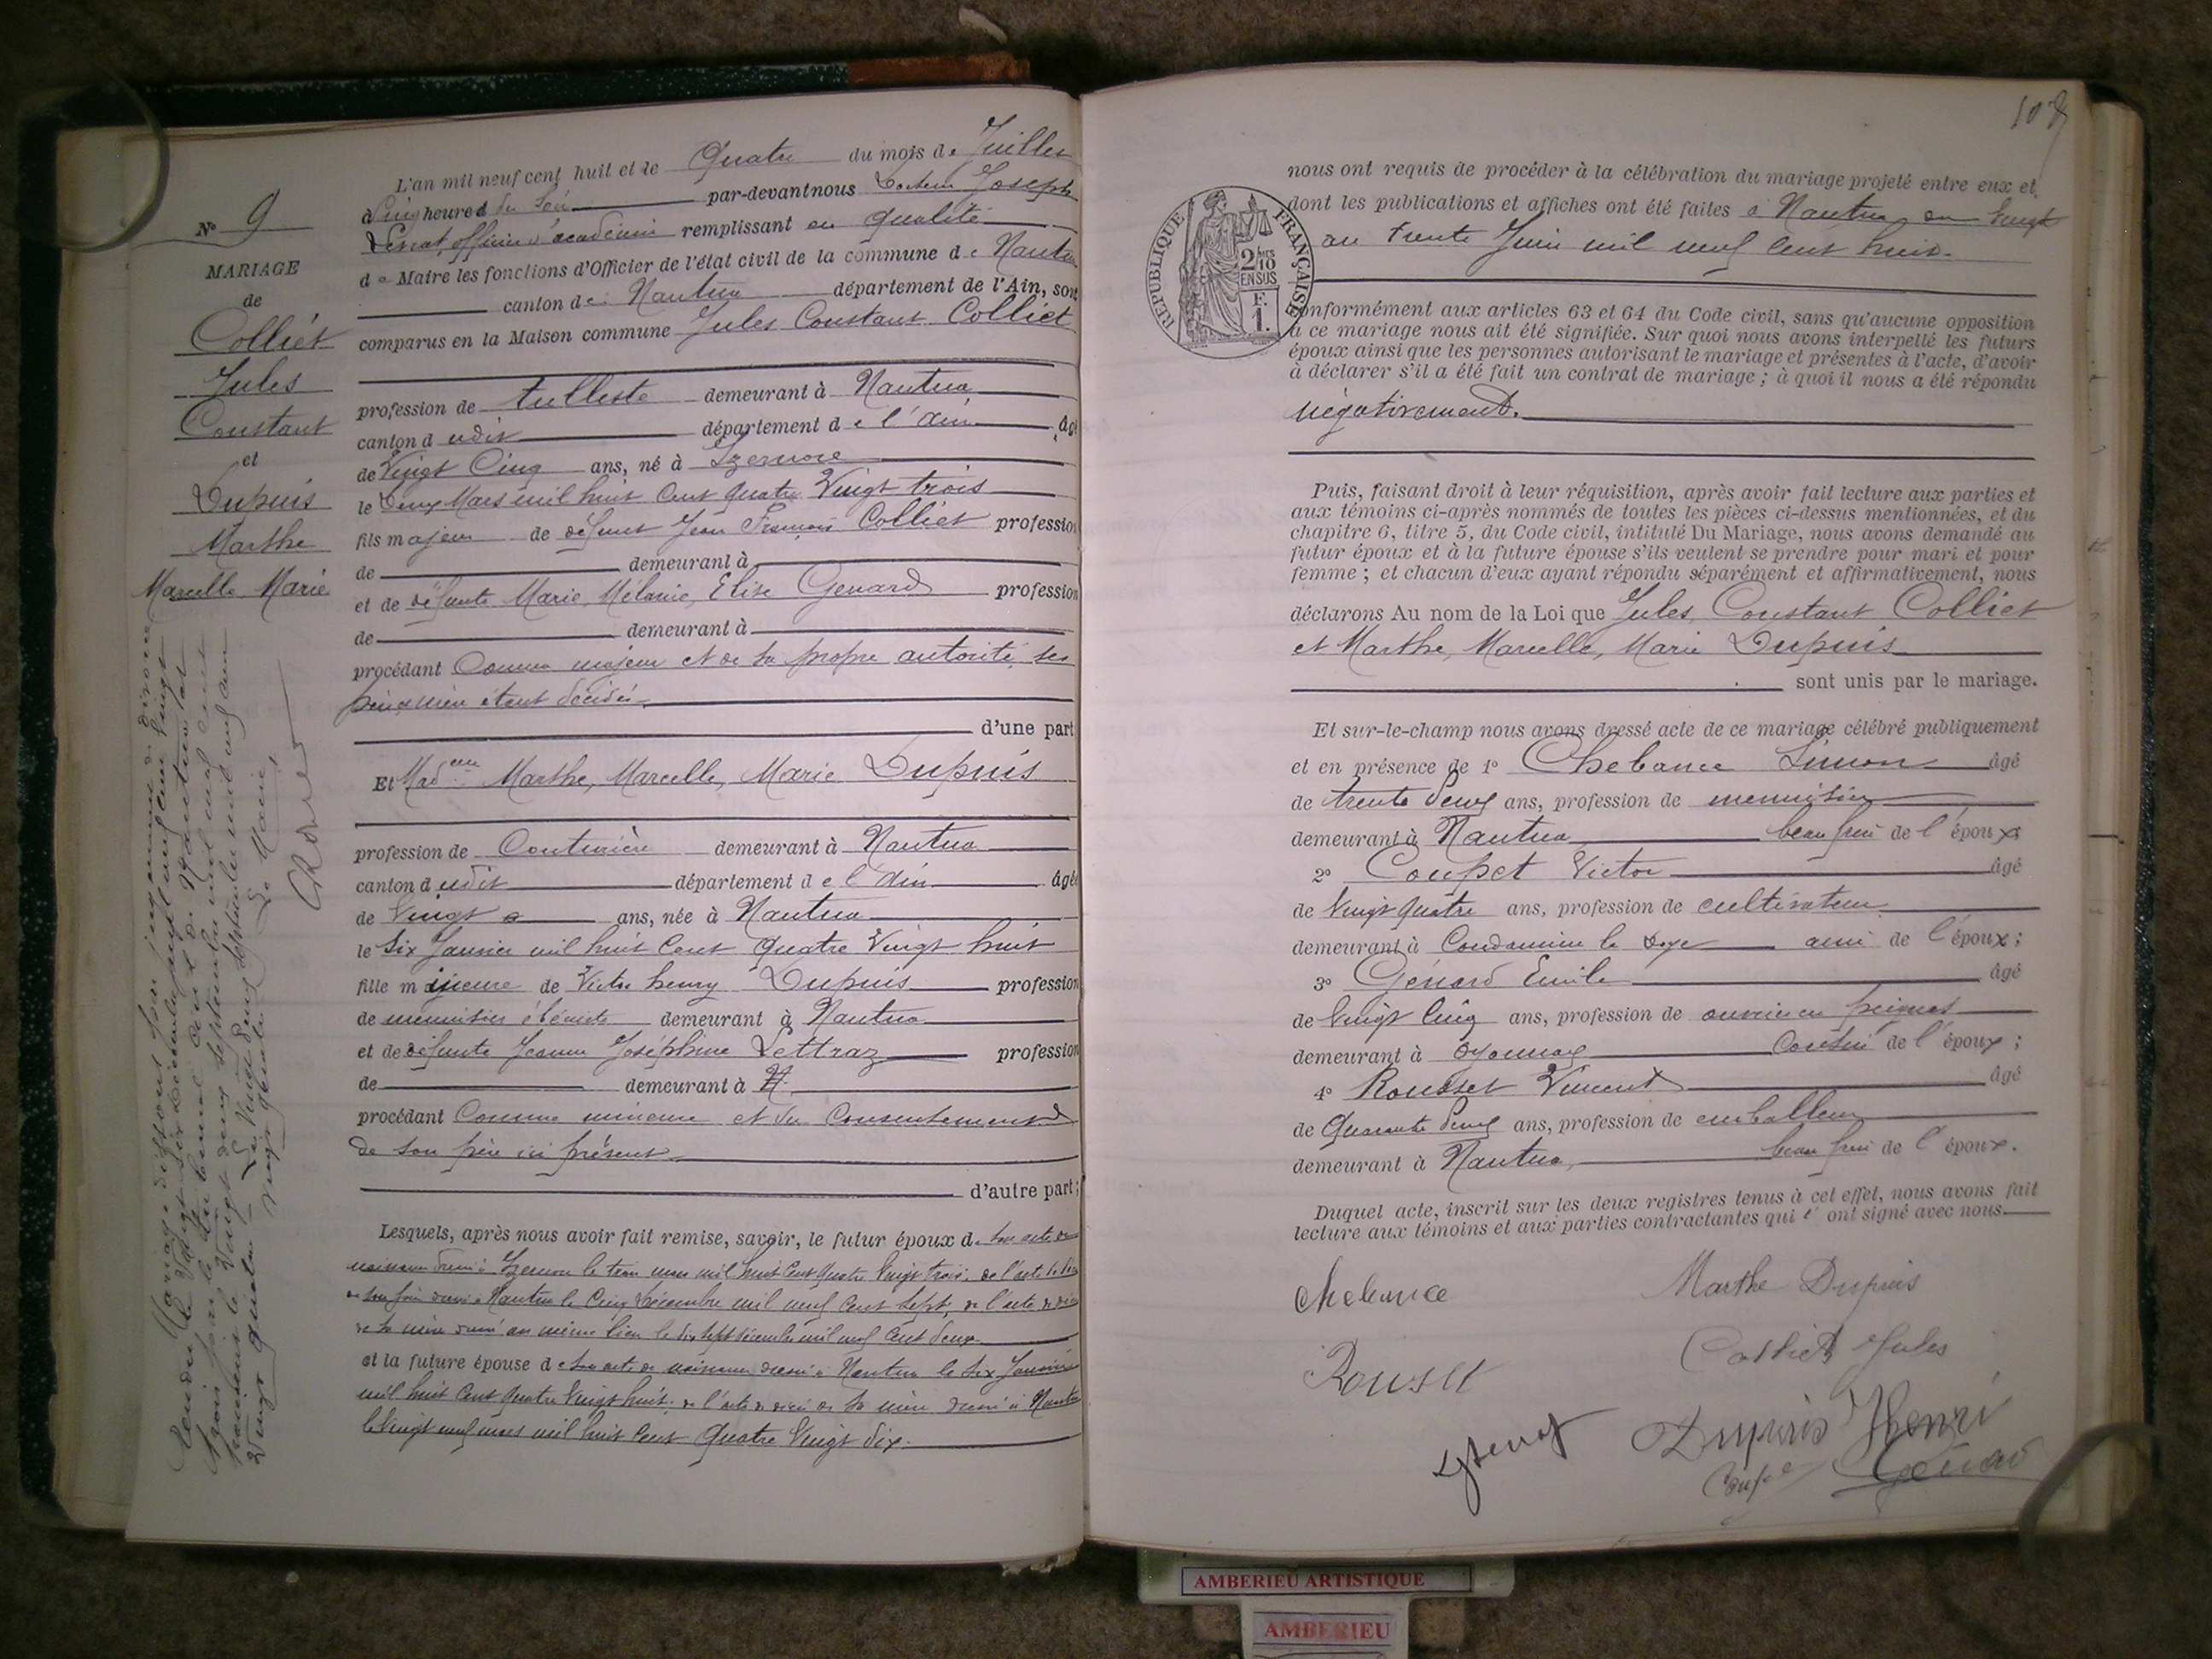 N° 9
MARIAGE
de
Colliet
Jules
Constant
et
Dupuis
Marthe
Marcelle Marie
L'an mil neuf cent huit et le Quatre du mois de Juillet
à Cinq heures du soir par-devant nous Docteur Joseph
officier d'académie remplissant en qualité
de Maire les fonctions d'Officier de l'état civil de la commune de Nantua
canton de Nantua département de l'Ain, sont
comparus en la Maison commune Jules Constant Colliet
profession de tulliste demeurant à Nantua
canton dudit département de l'Ain âgé
de Vingt Cinq ans, né à Izernore
le Deux Mars mil huit cent quatre Vingt trois
fils majeur de défunt Jean François Colliet profession
de demeurant à
et de défunte Marie, Mélanie, Elise Genard profession
de demeurant à
procédant Comme majeur et de sa propre autorité, ses
père & mère étant décédés
d'une part
Et Mad.elle Marthe, Marcelle, Marie Dupuis
profession de Couturière demeurant à Nantua
canton dudit département de l'Ain âgée
de Vingt ans, née à Nantua
le Six Janvier mil huit Cent quatre Vingt huit
fille mineure de Victor henry Dupuis profession
de menuisier ébéniste demeurant à Nantua
et de défunte Jeanne Joséphine Lettraz profession
de demeurant à
procédant Comme mineure et du Consentement
de son père ici présent
d'autre part;
Lesquels, après nous avoir fait remise, savoir, le futur époux de son acte de
naissance dressé à Izernore le trois mars mil huit Cent quatre Vingt trois, de l'acte de décès
de son père dressé à Nantua le Cinq Décembre mil neuf Cent Sept, de l'acte de décès
de sa mère dressé au même lieu le dix sept décembre mil neuf Cent deux
et la future épouse de son acte de naissance dressé à Nantua le Six Janvier
mil huit Cent quatre Vingt huit, de l'acte de décès de sa mère dressé à Nantua
le Vingt neuf mars mil huit Cent Quatre Vingt dix.
Mariage dissous par jugement de divorce
rendu le vingt six Décembre mil neuf cent vingt
trois par le tribunal civil de Nantua
Le Maire,
108
REPUBLIQUE FRANÇAISE
2/10
EN SUS
F.
1.
nous ont requis de procéder à la célébration du mariage projeté entre eux et
dont les publications et affiches ont été faites à Nantua du Vingt
au trente Juin mil neuf cent huit.
conformément aux articles 63 et 64 du Code civil, sans qu'aucune opposition
à ce mariage nous ait été signifiée. Sur quoi nous avons interpellé les futurs
époux ainsi que les personnes autorisant le mariage et présentes à l'acte, d'avoir
à déclarer s'il a été fait un contrat de mariage; à quoi il nous a été répondu
négativement.
Puis, faisant droit à leur réquisition, après avoir fait lecture aux parties et
aux témoins ci-après nommés de toutes les pièces ci-dessus mentionnées, et du
chapitre 6, titre 5, du Code civil, intitulé Du Mariage, nous avons demandé au
futur époux et à la future épouse s'ils veulent se prendre pour mari et pour
femme; et chacun d'eux ayant répondu séparément et affirmativement, nous
déclarons Au nom de la Loi que Jules, Constant Colliet
et Marthe, Marcelle, Marie Dupuis
sont unis par le mariage.
Et sur-le-champ nous avons dressé acte de ce mariage célébré publiquement
et en présence de 1° Chebance Simon âgé
de trente deux ans, profession de menuisier
demeurant à Nantua beau frère de l'époux
2° Coupet Victor âgé
de Vingt quatre ans, profession de cultivateur
demeurant à Condamine la Doye ami de l'époux;
3° Génard Emile âgé
de Vingt Cinq ans, profession de ouvrier en peignes
demeurant à Oyonnax Cousin de l'époux;
4° Rousset Vincent âgé
de Quarante deux ans, profession de emballeur
demeurant à Nantua, beau frère de l'époux.
Duquel acte, inscrit sur les deux registres tenus à cet effet, nous avons fait
lecture aux témoins et aux parties contractantes qui l'ont signé avec nous
Chebance
Marthe Dupuis
Rousset
Colliet Jules
Dupuis Henri
Coupet
Génard
AMBERIEU ARTISTIQUE
AMBERIEU